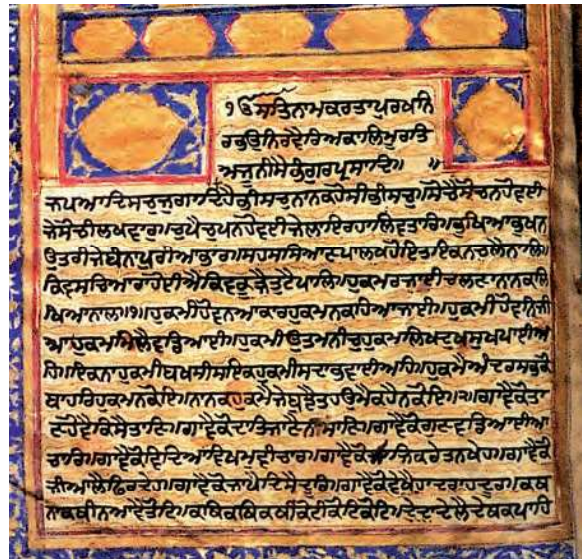 ੴਸਤਿਨਾਮਕਰਤਾਪੁਰਖਨਿ
ਰਭਉਨਿਰਵੈਰਿਅਕਾਲਿਮੂਰਤਿ
ਅਜੂਨੀਸੈਭੰਗੁਰਪ੍ਰਸਾਦਿ॥ ॥
ਜਪਆਦਿਸਚੁਜੁਗਾਦਿਹੈਭੀਸਚੁਨਾਨਕਹੋਸੀਭੀਸਚੁ।ਸੋਚੈਸੋਚਨਹੋਵਈ
ਜੇਸੋਚੀਲਖਵਾਰ।ਚੁਪੈਚੁਪਨਹੋਵਈਜੇਲਾਇਰਹਾਲਿਵਤਾਰਿ।ਭੁਖਿਆਭੁਖਨ
ਉਤਰੀਜੇਬੰਨਾਪੁਰੀਆਭਾਰ।ਸਹਸਸਿਆਣਪਾਲਖਹੋਇਤਇਕਨਚਲੈਨਾਲਿ॥
ਕਿਵਸਚਿਆਰਾਹੋਈਐਕਿਵਕੂੜੈਤੁਟੈਪਾਲਿ।ਹੁਕਮਰਜਾਈਚਲਣਾਨਾਨਕਲਿ
ਖਿਆਨਾਲ॥੧॥ਹੁਕਮੀਹੋਵਨਆਕਾਰਹੁਕਮਨਕਹਿਆਜਾਈ।ਹੁਕਮੀਹੋਵਨਿਜੀ
ਆਹੁਕਮਮਿਲੈਵਡਿਆਈ।ਹੁਕਮੀਉਤਮਨੀਚੁਹੁਕਮਲਿਖਦੁਖਸੁਖਪਾਈਅ
ਹਿ।ਇਕਨਾਹੁਕਮੀਬਖਸੀਸਇਕਹੁਕਮੀਸਦਾਭੁਵਾਈਅਹਿ।ਹੁਕਮੈਅੰਦਰਸਭੁਕੋ
ਬਾਹਰਿਹੁਕਮਨਕੋਇ।ਨਾਨਕਹੁਕਮੈਜੇਬੁਝੈਤਹਉਮੈਕਹੈਨਕੋਇ॥੨॥ਗਾਵੈਕੋਤਾ
ਣਹੋਵੈਕਿਸੈਤਾਣਿ।ਗਾਵੈਕੋਦਾਤਿਜਾਣੈਨੀਸਾਣਿ।ਗਾਵੈਕੋਗੁਣਵਡਿਆਈਆ
ਚਾਰਿ।ਗਾਵੈਕੋਵਿਦਿਆਵਿਖਮੁਵੀਚਾਰ।ਗਾਵੈਕੋਸਾਜਿਕਰੇਤਨਖੇਹ।ਗਾਵੈਕੋ
ਜੀਆਲੈਫਿਰਦੇਹ।ਗਾਵੈਕੋਜਾਪੈਦਿਸੈਦੂਰਿ।ਗਾਵੈਕੋਵੇਖੈਹਾਦਰਾਹਦੂਰ।ਕਥ
ਨਾਕਥੀਨਆਵੈਤੋਟਿ।ਕਥਿਕਥਿਕਥੀਕੋਟੀਕੋਟਿਕੋਟਿ।ਦੇਦਾਦੇਲੈਦੇਥਕਪਾਹਿ